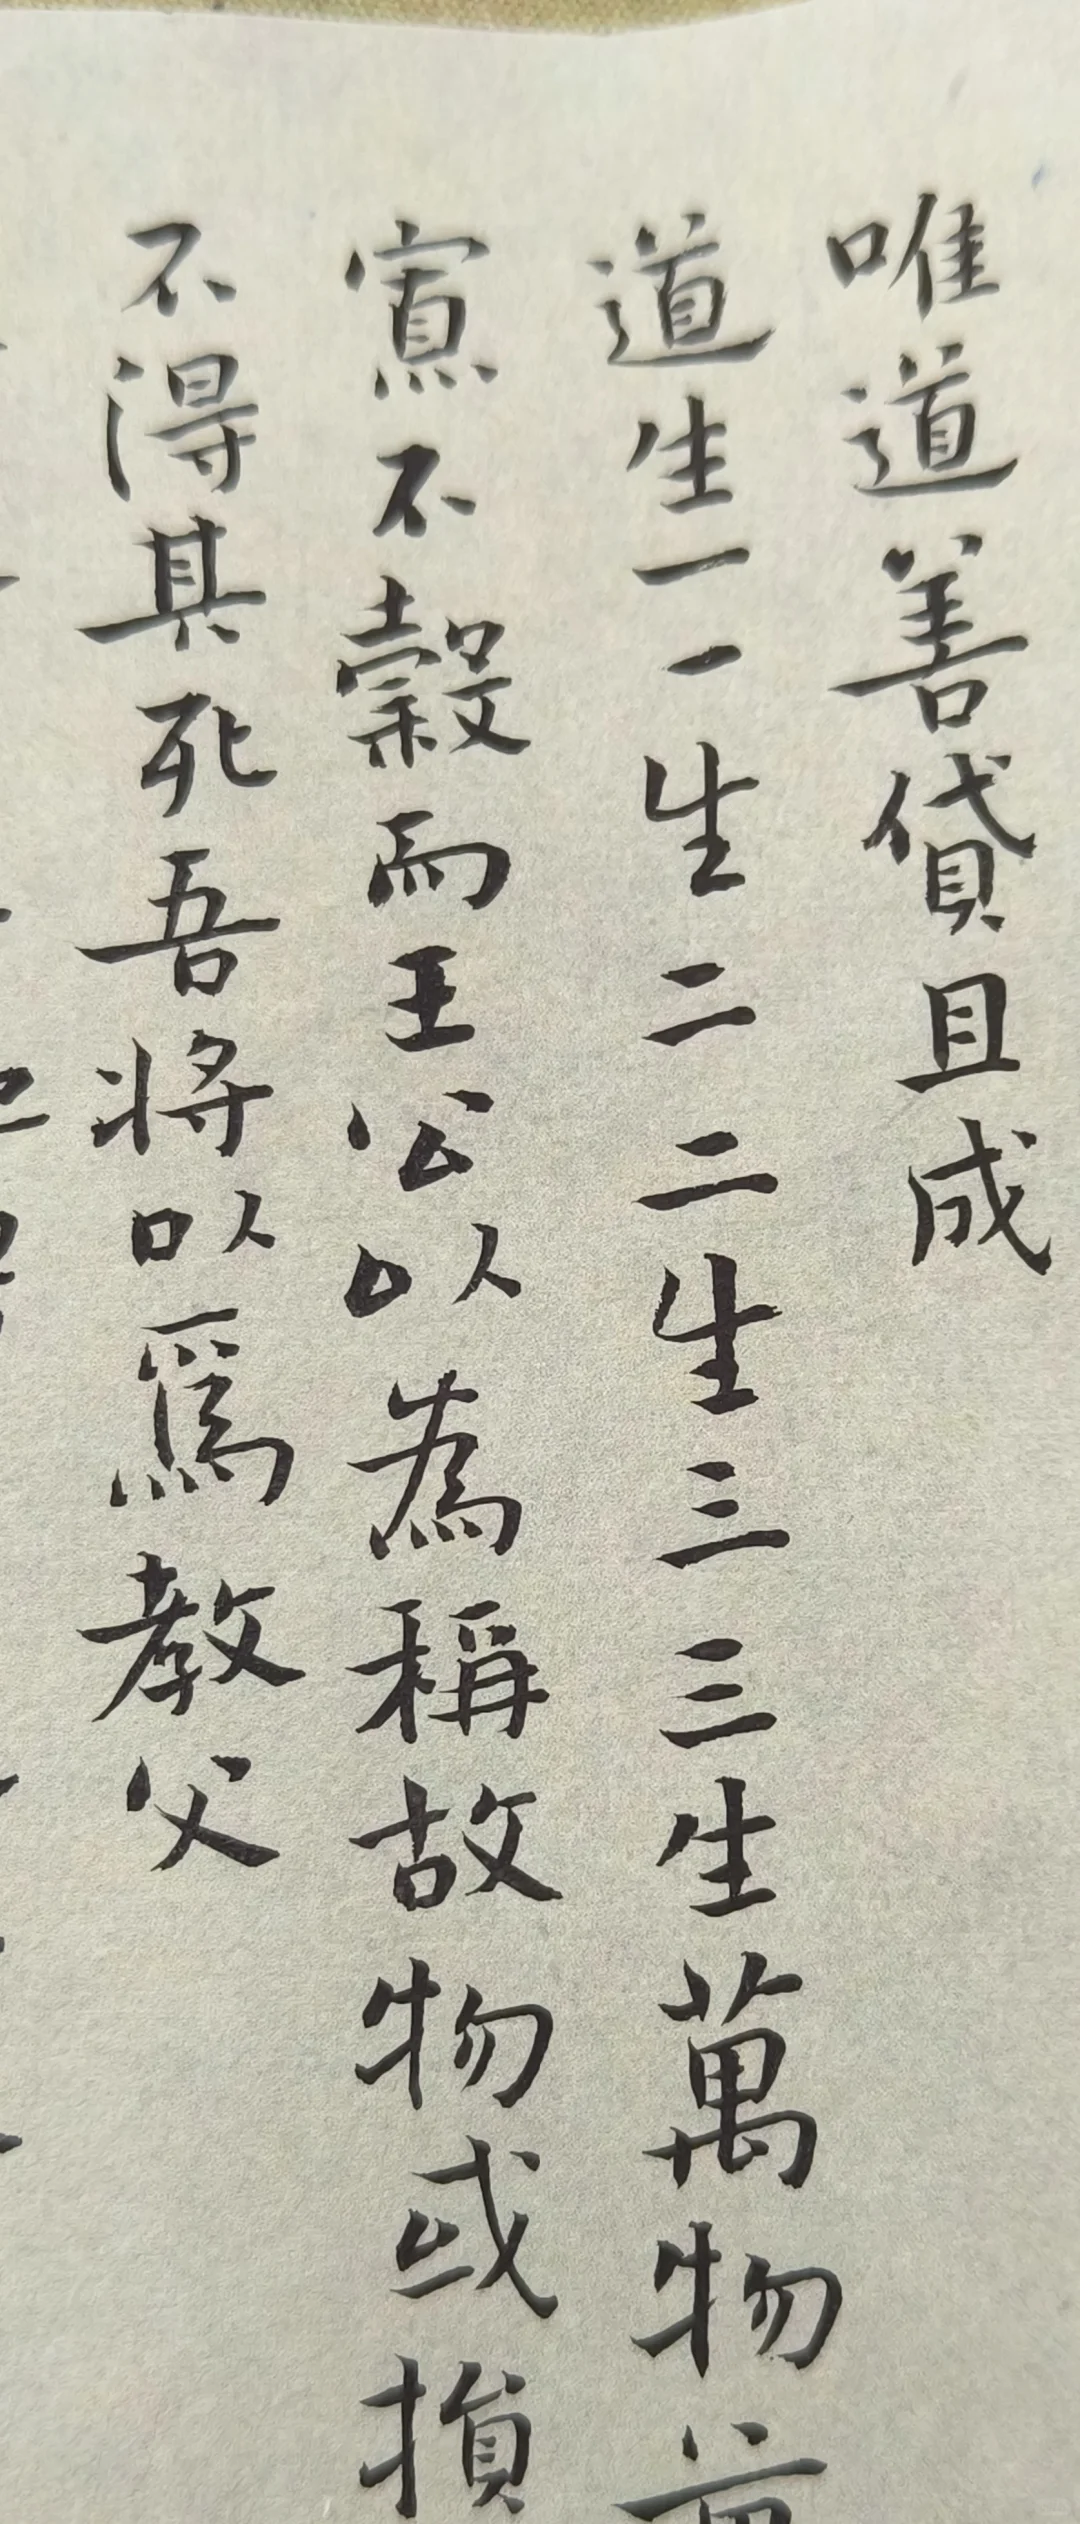 唯道善貸且成
道生一一生二二生三三生萬物
寡不穀而王公以為稱故物或損
不得其死吾將以爲教父